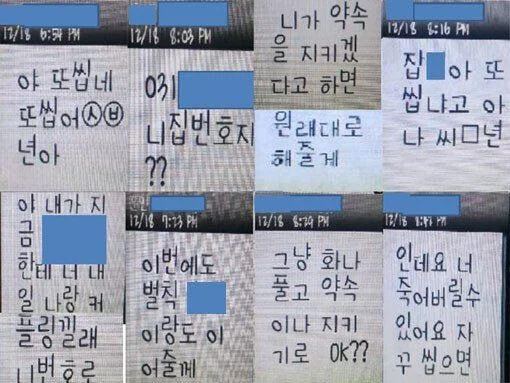 12/18 6:54 PM
야 또씹네
또씹어㉦㉥
년아
12/18 8:03 PM
031
니집번호지
??
니가 약속
을 지키겠
다고 하면
원래대로
해줄게
12/18 8:16 PM
잡 아 또
씹냐고 아
나 씨□년
야 내가 지
금
한테 너 내
일 나랑 커
플링낄래
니번호로
12/18 7:23 PM
이번에도
벌칙
이랑도 이
어줄게
12/18 8:29 PM
그냥 화나
풀고 약속
이나 지키
기로 OK??
12/18 PM
인데요 너
죽어버릴수
있어요 자
꾸 씹으면